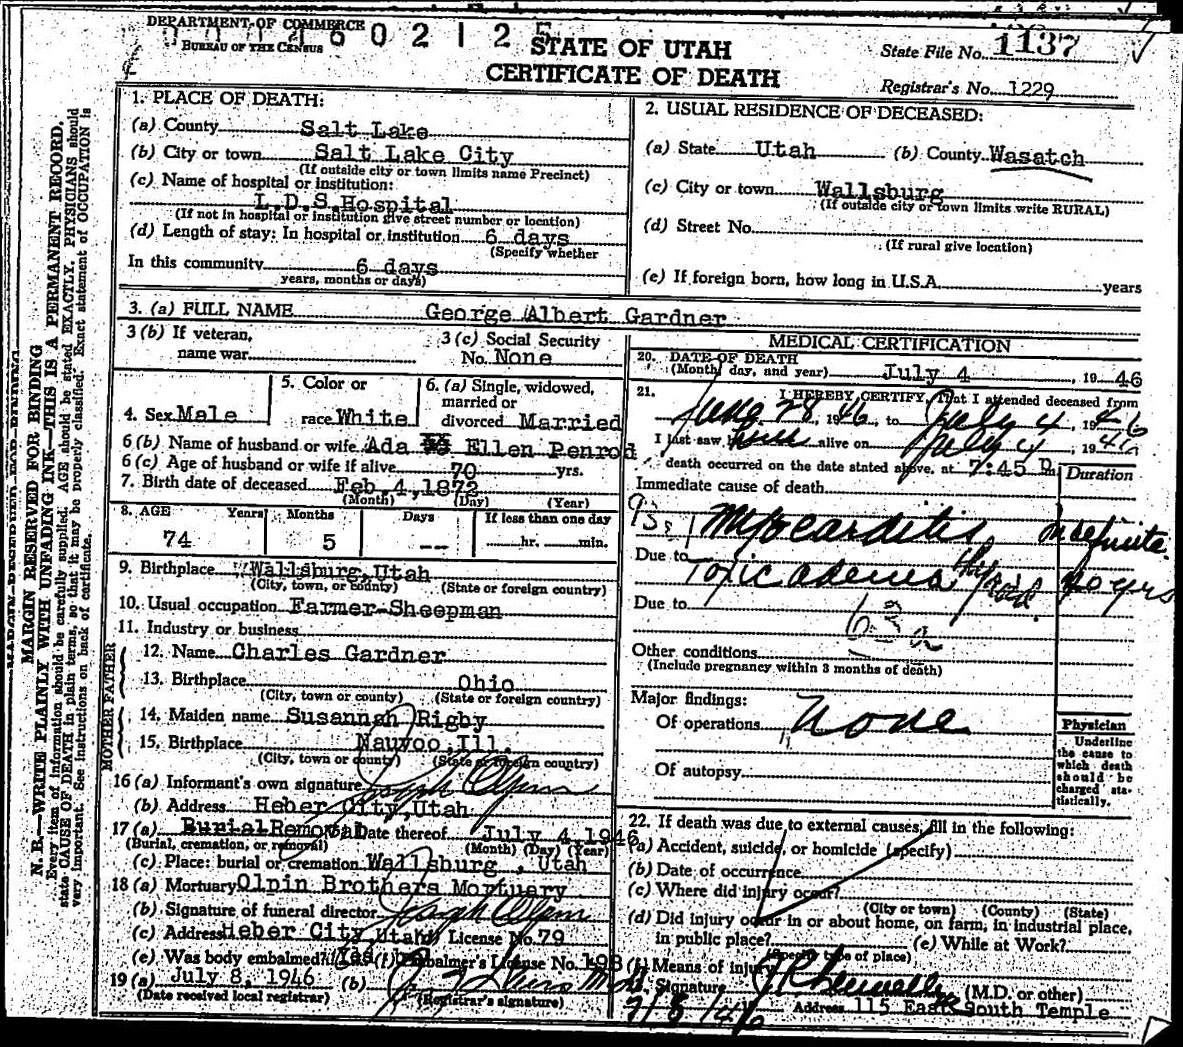 DEPARTMENT OF COMMERCE
BUREAU OF THE CENSUS
0 0 0 4 6 0 2 1 2 5
STATE OF UTAH
CERTIFICATE OF DEATH
State File No. 1137
Registrar's No. 1229
MARGIN RESERVED FOR BINDING
N. B.—WRITE PLAINLY WITH UNFADING INK—THIS IS A PERMANENT RECORD.
Every item of information should be carefully supplied. AGE should be stated EXACTLY. PHYSICIANS should
state CAUSE OF DEATH in plain terms, so that it may be properly classified. Exact statement of OCCUPATION is
very important. See instructions on back of certificate.
1. PLACE OF DEATH:
(a) County Salt Lake
(b) City or town Salt Lake City
(If outside city or town limits name Precinct)
(c) Name of hospital or institution:
L.D.S. Hospital
(If not in hospital or institution give street number or location)
(d) Length of stay: In hospital or institution 6 days
(Specify whether
In this community 6 days
years, months or days)
2. USUAL RESIDENCE OF DECEASED:
(a) State Utah (b) County Wasatch
(c) City or town Wallsburg
(If outside city or town limits write RURAL)
(d) Street No.
(If rural give location)
(e) If foreign born, how long in U.S.A. years
3. (a) FULL NAME George Albert Gardner
3 (b) If veteran,
name war
3 (c) Social Security
No. None
4. Sex Male
5. Color or
race White
6. (a) Single, widowed,
married or
divorced Married
6 (b) Name of husband or wife Ada Ellen Penrod
6 (c) Age of husband or wife if alive 70 yrs.
7. Birth date of deceased Feb 4, 1872
(Month) (Day) (Year)
8. AGE Years Months Days If less than one day
74 5 -- hr. min.
9. Birthplace Wallsburg, Utah
(City, town, or county) (State or foreign country)
10. Usual occupation Farmer-Sheepman
11. Industry or business
FATHER
12. Name Charles Gardner
13. Birthplace Ohio
(City, town or county) (State or foreign country)
MOTHER
14. Maiden name Susannah Rigby
15. Birthplace Nauvoo, Ill.
(City, town or county) (State or foreign country)
16 (a) Informant's own signature Joseph Olpin
(b) Address Heber City, Utah
17 (a) Burial Removal (b) Date thereof July 4, 1946
(Burial, cremation, or removal) (Month) (Day) (Year)
(c) Place: burial or cremation Wallsburg, Utah
18 (a) Mortuary Olpin Brothers Mortuary
(b) Signature of funeral director Joseph Olpin
(c) Address Heber City Utah License No. 79
(e) Was body embalmed? Yes (f) Embalmer's License No. 198
19 (a) July 8, 1946 (b)
(Date received local registrar) (Registrar's signature)
MEDICAL CERTIFICATION
20. DATE OF DEATH
(Month, day, and year) July 4, 1946
21. I HEREBY CERTIFY, That I attended deceased from
June 28, 1946, to July 4, 1946
I last saw him alive on July 4, 1946
death occurred on the date stated above, at 7:45 P m
Duration
Immediate cause of death
93
Myocarditis Indefinite
Due to Toxic adenoma thyroid 20 yrs
Due to
63a
Other conditions
(Include pregnancy within 3 months of death)
Major findings:
Of operations None
Of autopsy
Physician
Underline
the cause to
which death
should be
charged sta-
tistically.
22. If death was due to external causes, fill in the following:
(a) Accident, suicide, or homicide (specify)
(b) Date of occurrence
(c) Where did injury occur?
(City or town) (County) (State)
(d) Did injury occur in or about home, on farm, in industrial place,
in public place? (e) While at Work?
(Specify type of place)
(f) Means of injury
Signature (M.D. or other)
7/8/46 Address 115 East South Temple